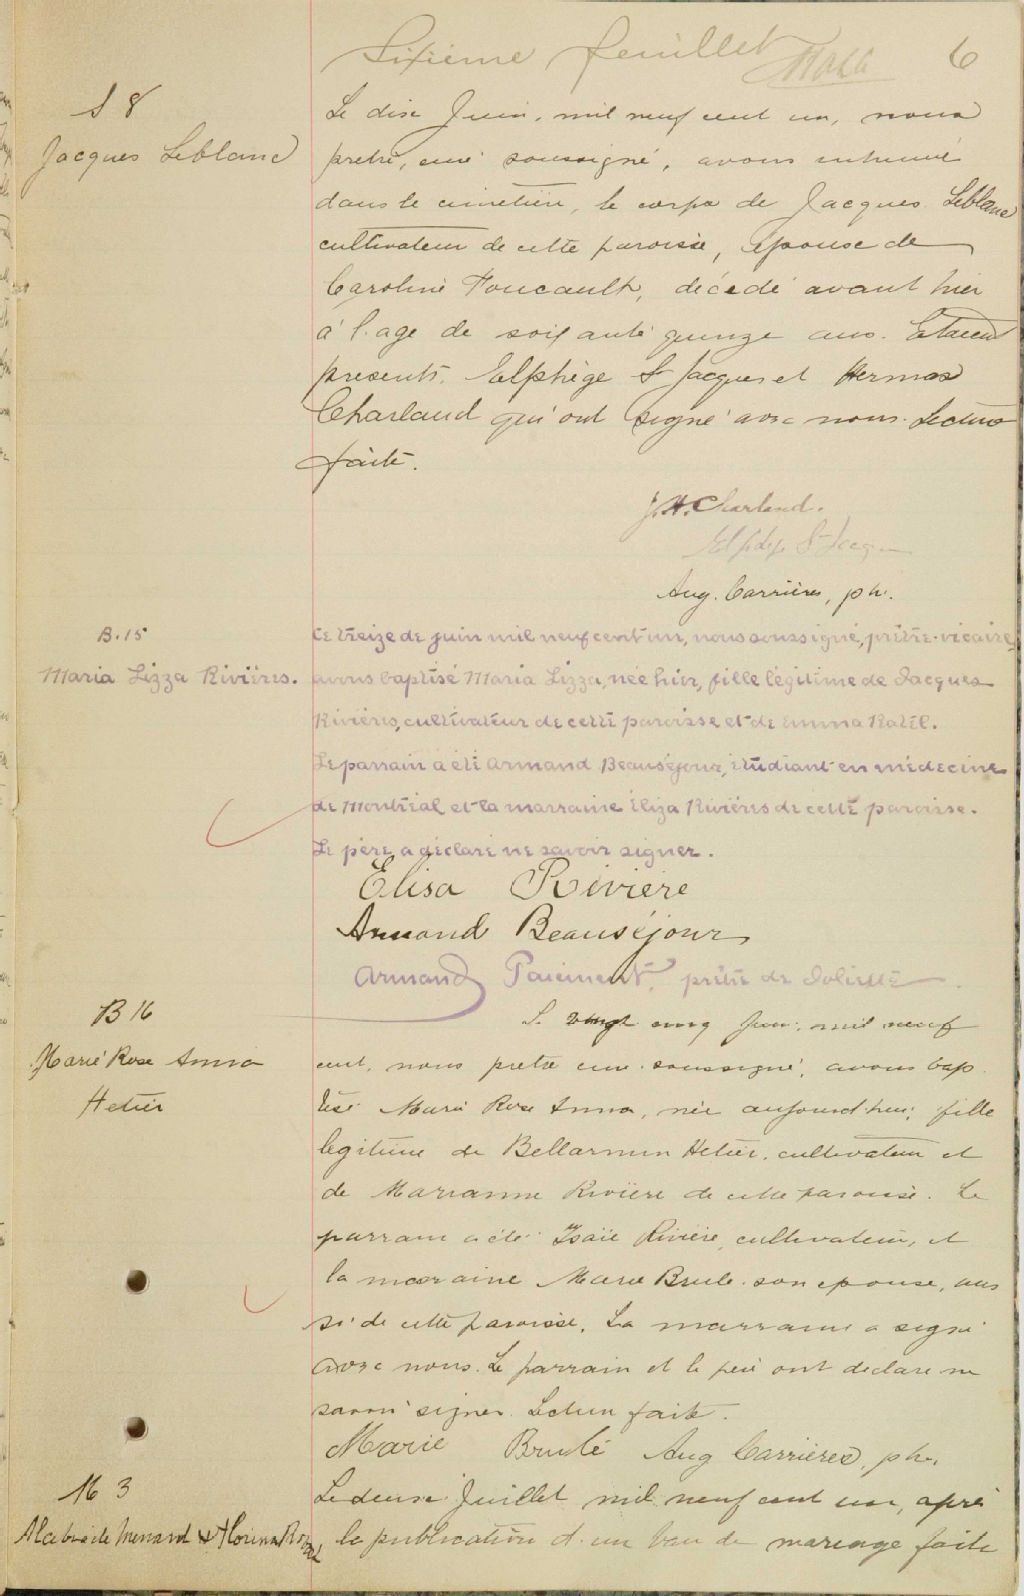 Sixième feuillet 6
S 8
Jacques Leblanc
Le dix Juin, mil neuf cent un, nous
pretre, curé soussigné, avons inhumé
dans le cimetière, le corps de Jacques Leblanc
cultivateur de cette paroisse, epoux de
Caroline Foucault, décédé avant hier
à l'age de soixante quinze ans. Etaient
presents. Elphège St Jacques et Hermas
Charland qui ont signé avec nous. Lecture
faite.
J. H. Charland.
Elphège St Jacques
Aug. Carrières, ptr.
B. 15
Maria Lizza Rivières.
Ce treize de juin mil neuf cent un, nous soussigné, prêtre-vicaire,
avons baptisé Maria Lizza, née hier, fille légitime de Jacques
Rivières, cultivateur de cette paroisse et de Emma Ratel.
Le parrain a été Armand Beauséjour, étudiant en médecine
de Montréal et la marraine Éliza Rivières de cette paroisse.
Le père a déclaré ne savoir signer.
Elisa Rivière
Armand Beauséjour
Armand Paiement, prêtre de Joliette.
B 16
Marie Rose Anna
Hetier
Le vingt cinq Juin, mil neuf
cent, nous pretre curé soussigné, avons bap
tisé Marie Rose Anna, née aujourd'hui, fille
legitime de Bellarmin Hetier, cultivateur et
de Marianne Rivière de cette paroisse. Le
parrain a été Isaïe Rivière, cultivateur, et
la marraine Marie Brulé son epouse, aus
si de cette paroisse. La marraine a signé
avec nous. Le parrain et le père ont declaré ne
savoir signer. Lecture faite.
Marie Brulé Aug Carrières, ptr.
M 3
Menard & Florina
Le deux Juillet mil neuf cent un, après
la publication d'un ban de mariage faite